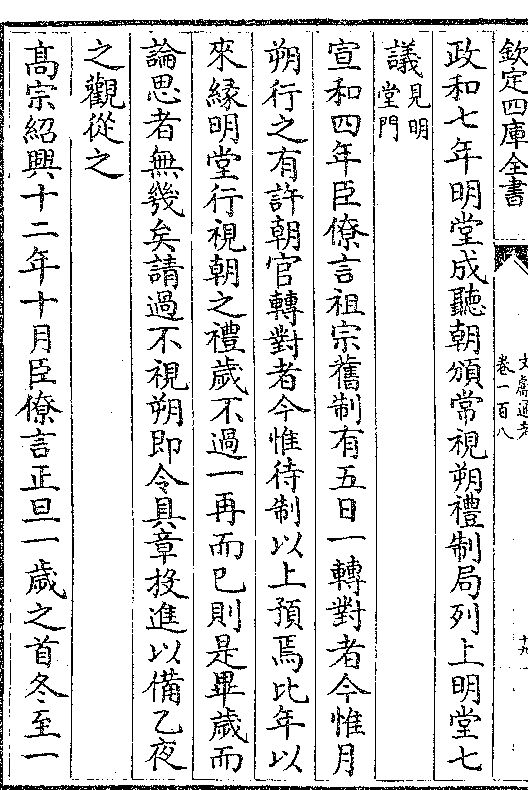 欽定四庫全書
文獻通考
卷一百八
十九
政和七年明堂成聽朝頒常視朔禮制局列上明堂七
議見明堂門
宣和四年臣僚言祖宗舊制有五日一轉對者今惟月
朔行之有許朝官轉對者今惟待制以上預焉比年以
來緣明堂行視朝之禮歲不過一再而已則是畢歲而
論思者無幾矣請過不視朔即令具章投進以備乙夜
之觀從之
髙宗紹興十二年十月臣僚言正旦一歲之首冬至一